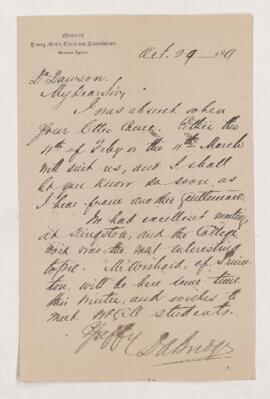 Montreal
Young Men's Christian Association.
Oct. 29 1889
Dr Dawson,
My dear Sir,
I was absent when
your letter came. Either the
4th of Feby or the 4th March
will suit us, and I shall
let you know so soon as
I hear from another gentleman.
We had excellent meeting
at Kingston, and the College
work was the most interesting
to me. Mr. of Prince
ton, will be here some time
this winter, and wishes to
meet McGill students.
Yours ffy
D A Budge